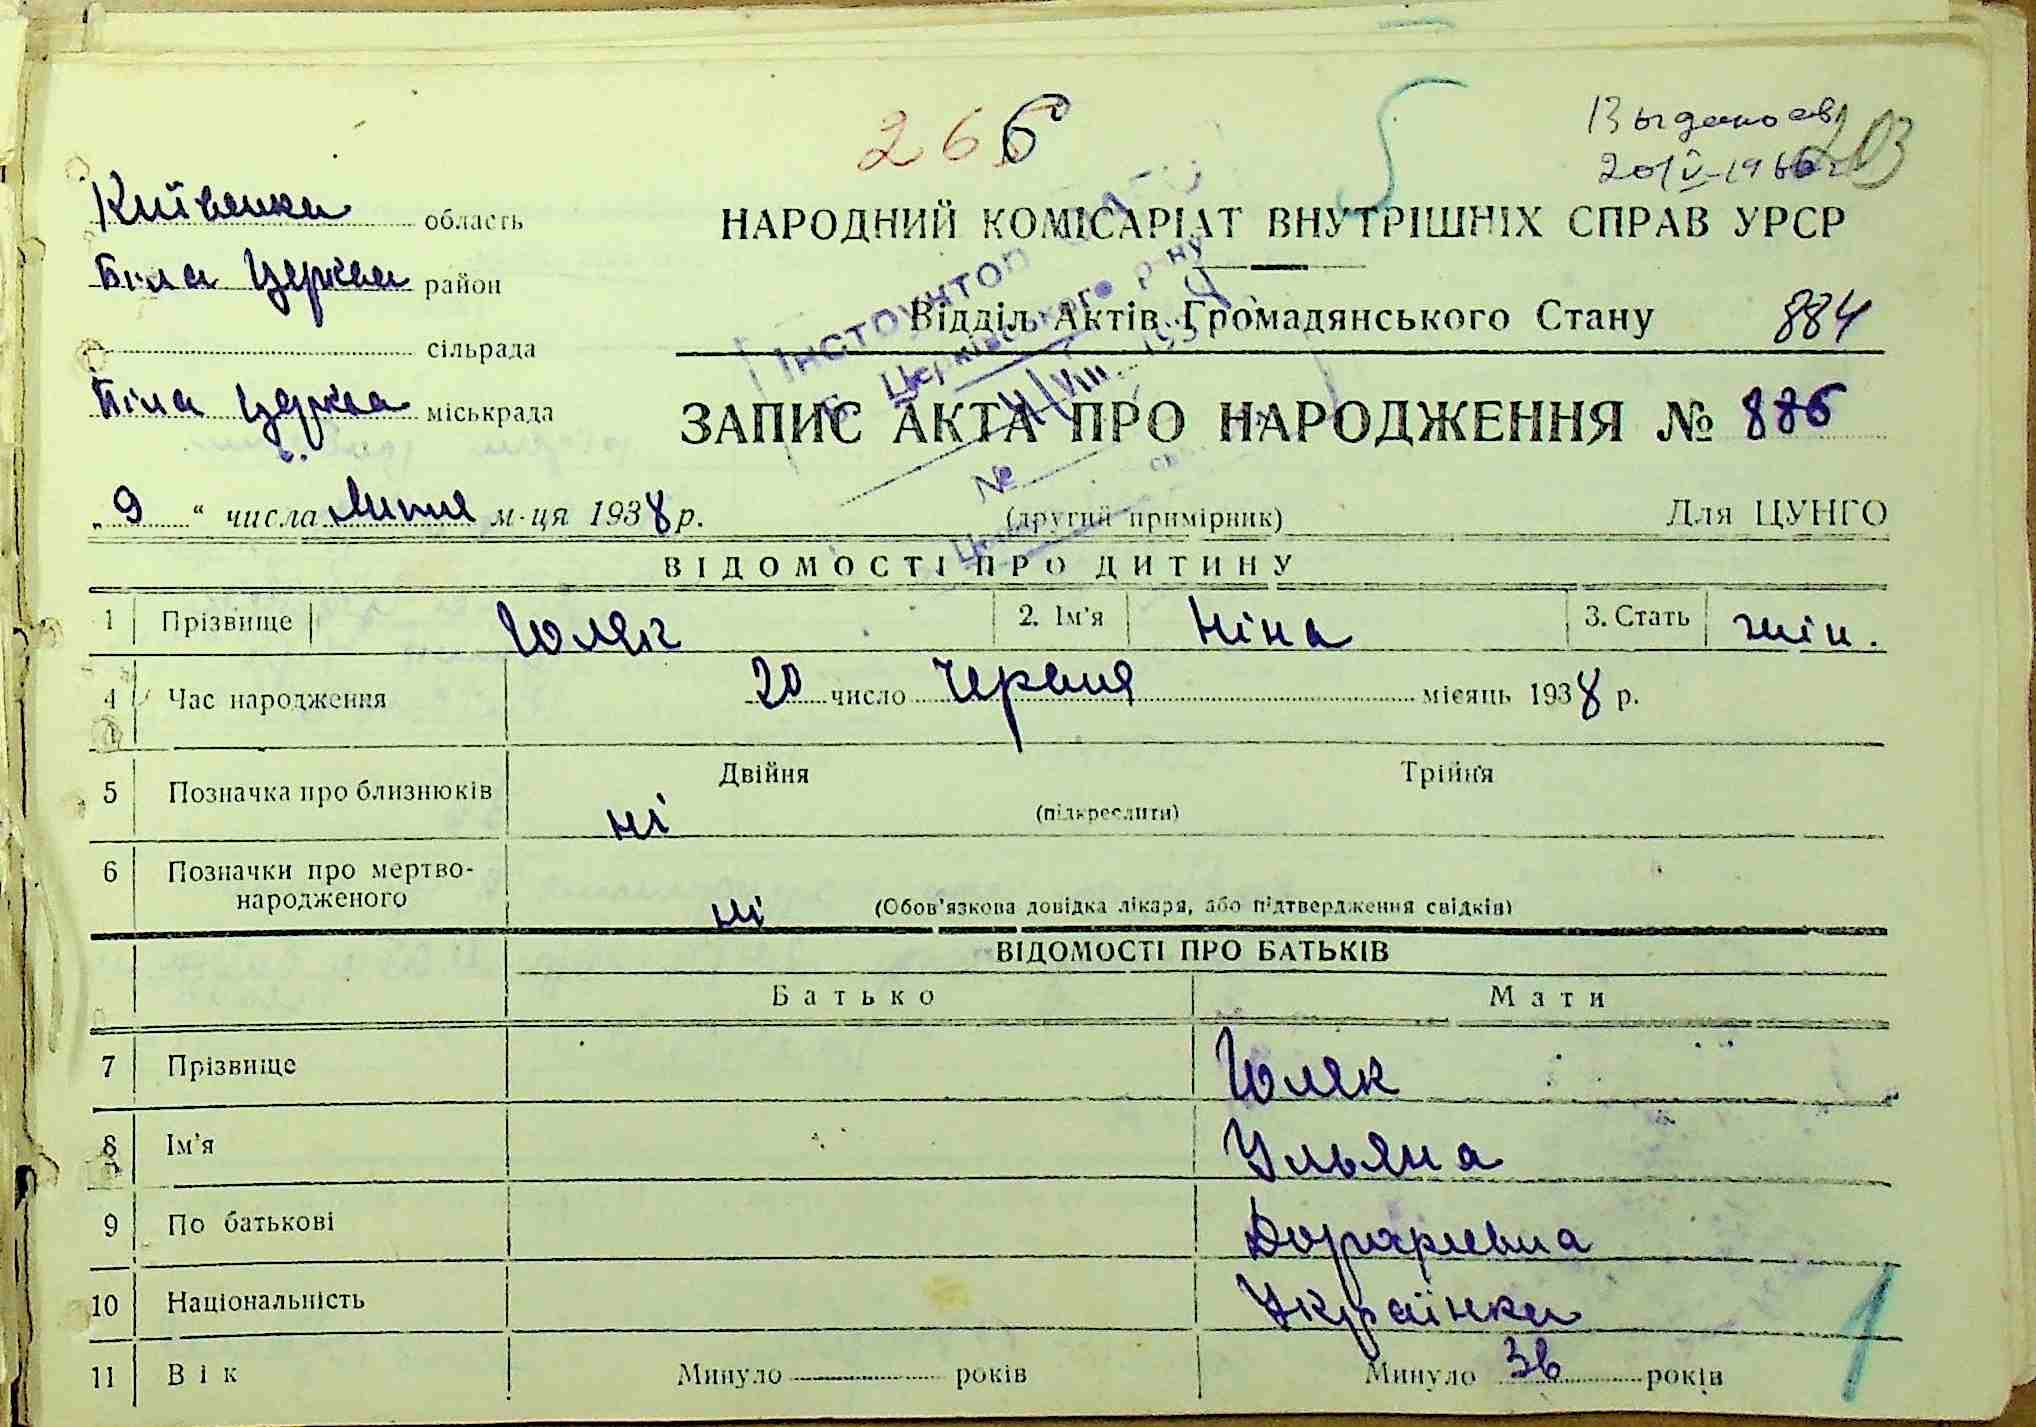 266
5
Выдано св
20/V-1966г
203
Київська область
НАРОДНИЙ КОМІСАРІАТ ВНУТРІШНІХ СПРАВ УРСР
Біла Церква район
Відділ Актів Громадянського Стану
884
сільрада
Біла Церква міськрада
ЗАПИС АКТА ПРО НАРОДЖЕННЯ № 886
„ 9 “ числа липня м-ця 1938 р.
(другий примірник)
Для ЦУНГО
ВІДОМОСТІ ПРО ДИТИНУ
1 Прізвище Голяк 2. Ім'я Ніна 3. Стать жін.
4 Час народження 20 число Червня місяць 1938 р.
5 Позначка про близнюків Двійня Трійня
ні (підкреслити)
6 Позначки про мертво-
народженого ні (Обов'язкова довідка лікаря, або підтвердження свідків)
ВІДОМОСТІ ПРО БАТЬКІВ
Батько Мати
7 Прізвище Голяк
8 Ім'я Ульяна
9 По батькові
10 Національність Українка
11 Вік Минуло років Минуло 36 років
Інструктор
Церківського р-ну
№